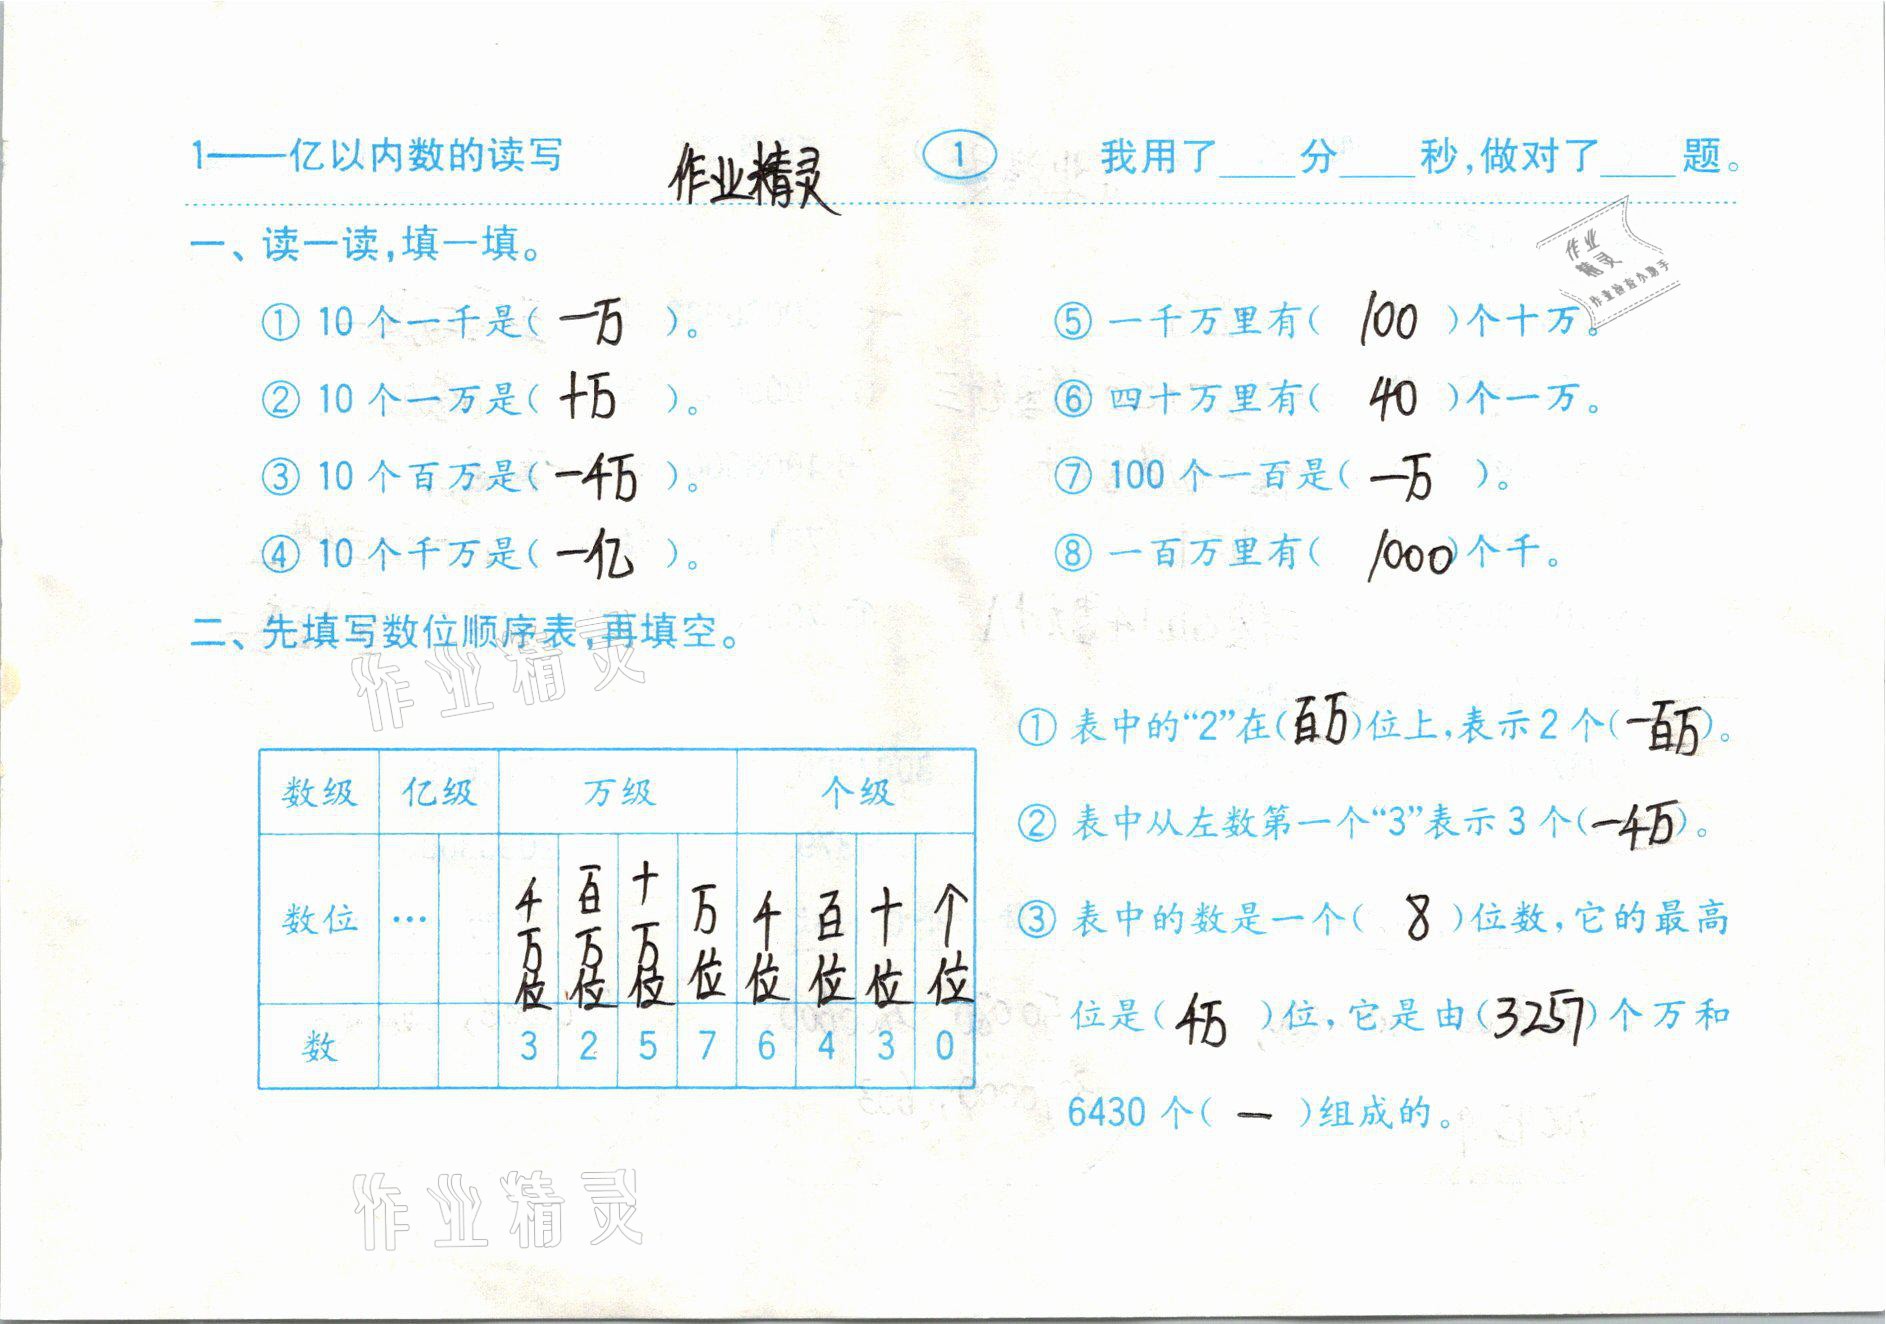 1——亿以内数的读写 作业精灵 1 我用了____分____秒,做对了____题。
作业
精灵
作业检查小助手
一、读一读,填一填。
① 10个一千是( 一万 )。
② 10个一万是( 十万 )。
③ 10个百万是( 一千万 )。
④ 10个千万是( 一亿 )。
⑤ 一千万里有( 100 )个十万。
⑥ 四十万里有( 40 )个一万。
⑦ 100个一百是( 一万 )。
⑧ 一百万里有( 1000 )个千。
二、先填写数位顺序表,再填空。
作业精灵
数级 亿级 万级 个级
数位 … 千万位 百万位 十万位 万位 千位 百位 十位 个位
数 3 2 5 7 6 4 3 0
① 表中的“2”在(百万)位上,表示2个(一百万)。
② 表中从左数第一个“3”表示3个(一千万)。
③ 表中的数是一个( 8 )位数,它的最高
位是( 千万 )位,它是由(3257)个万和
6430个( 一 )组成的。
作业精灵